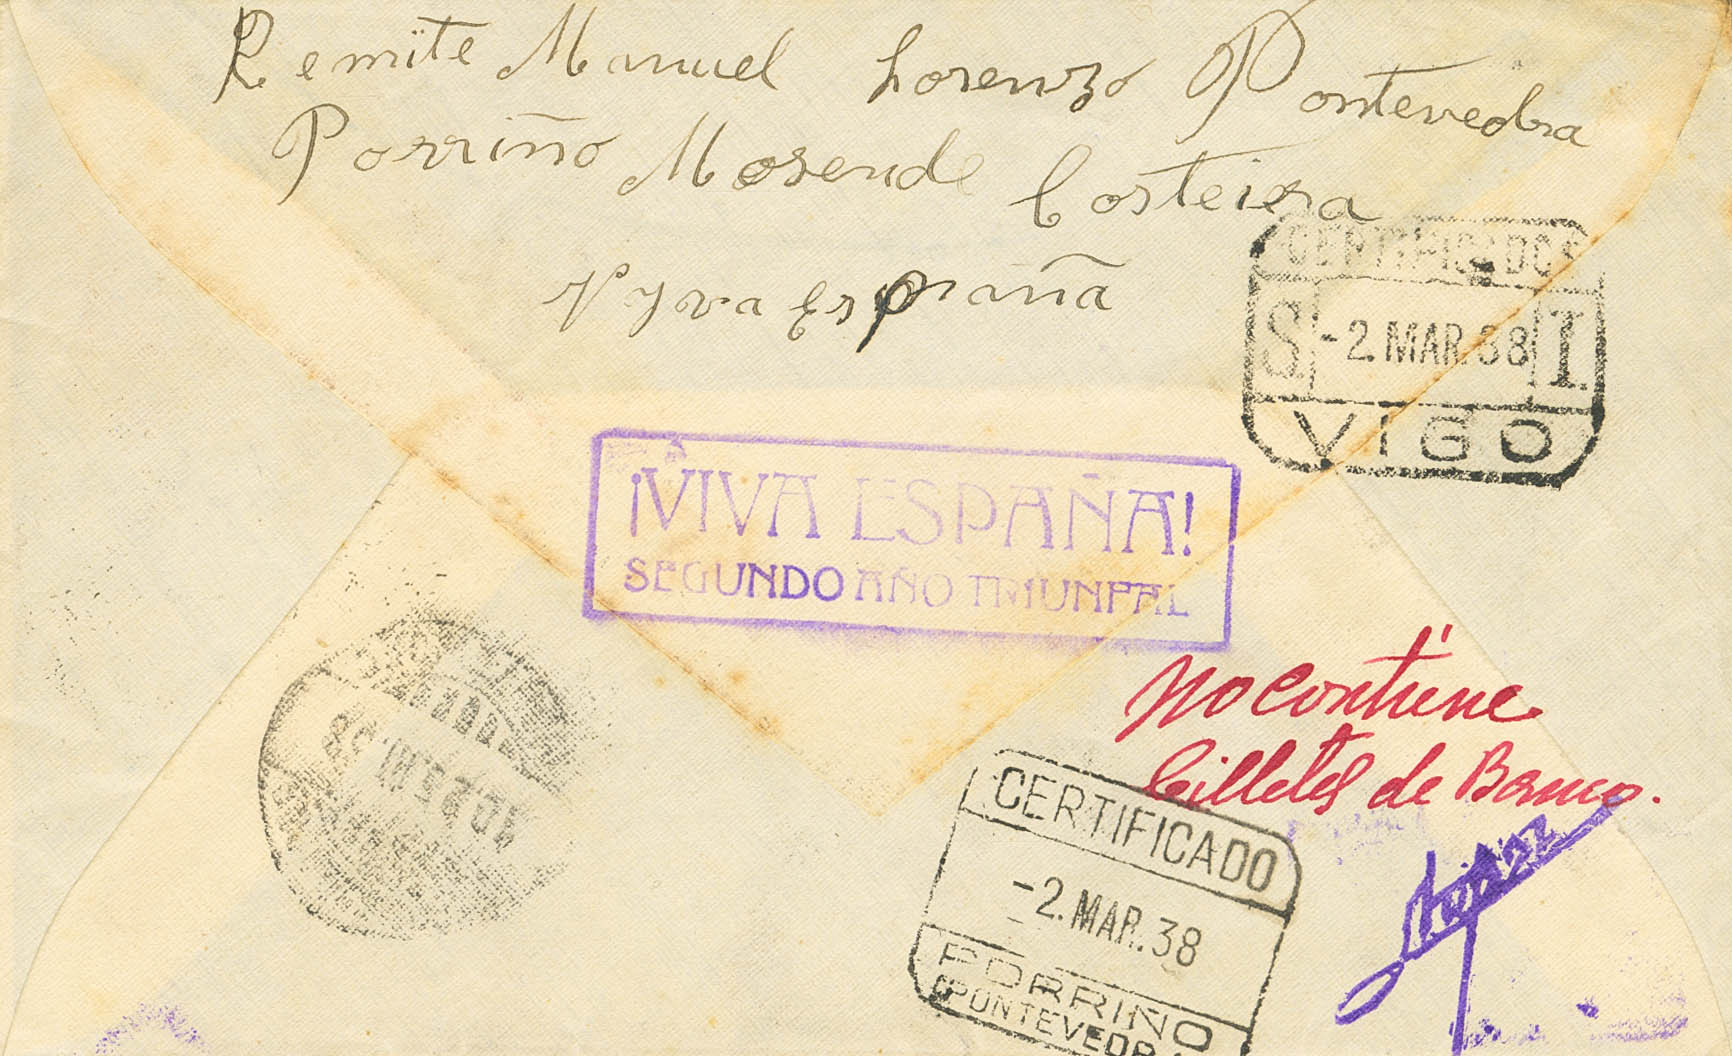 Remite Manuel Lorenzo Pontevedra
Porriño Mosende Costeira
Vyva España
CERTIFICADOS
S. -2. MAR. 38 T.
VIGO
¡VIVA ESPAÑA!
SEGUNDO AÑO TRIUNFAL
No Contiene
billetes de Banco.
CERTIFICADO
-2. MAR. 38
PORRIÑO
(PONTEVEDRA